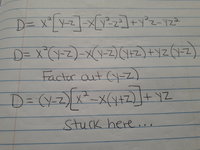 D= x²[y-z]-x[y²-z²]+y²z-yz²
D= x²(y-z)-x(y-z)(y+z)+yz(y-z)
Factor out (y-z)
D= (y-z)[x²-x(y+z)]+yz
Stuck here...